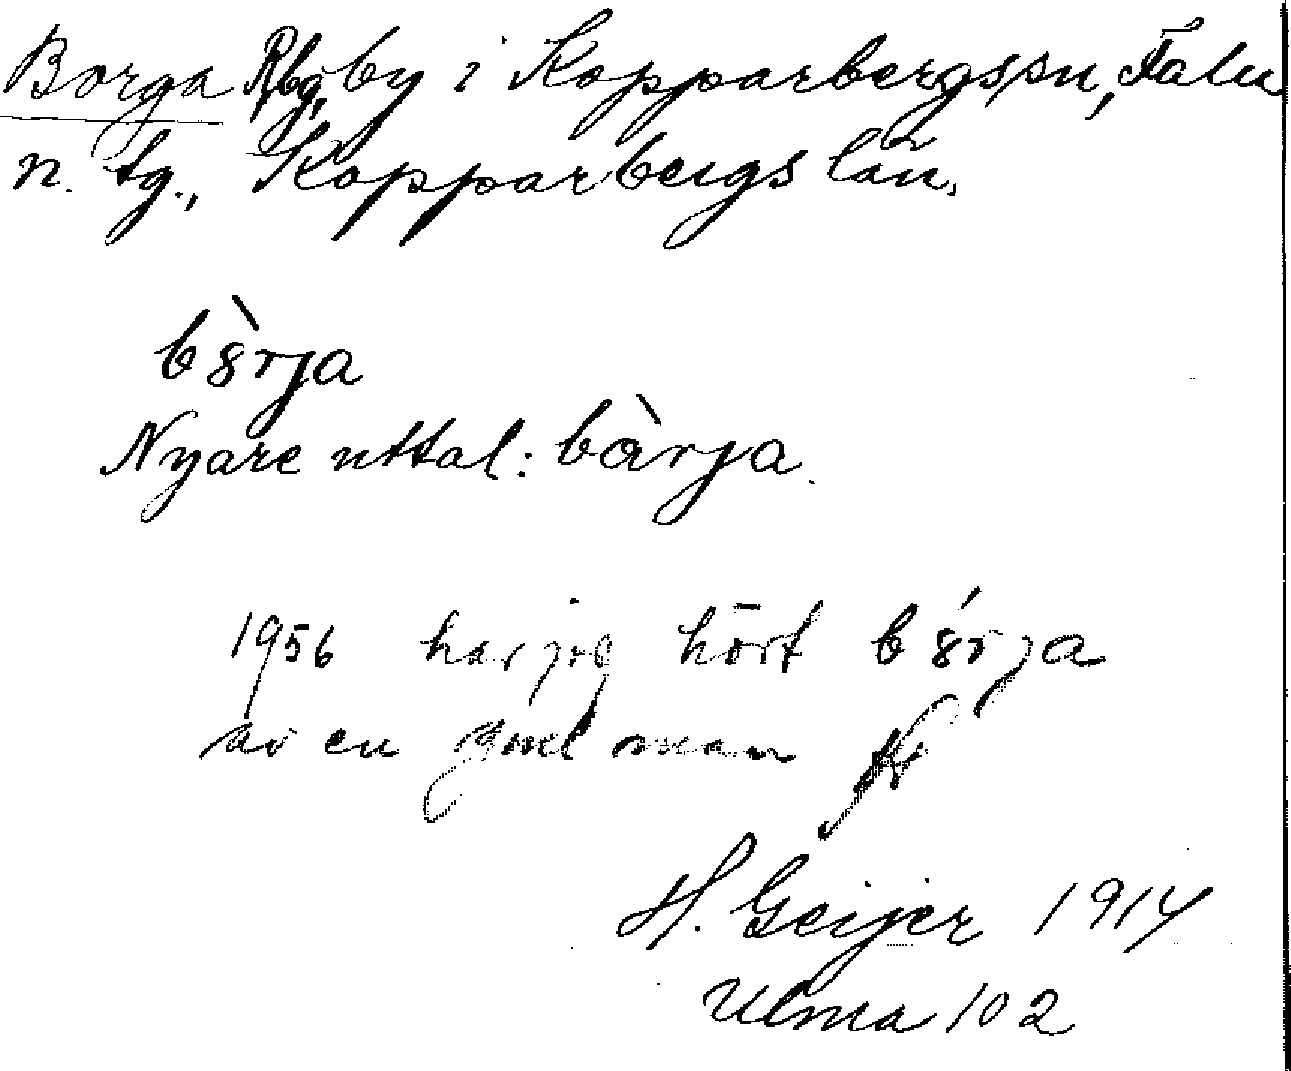 Borga Rbg, by i Kopparbergs sn, Falu
n. tg., Kopparbergs län.
b8̀rja
Nyare uttal: bàrja.
1956 har jag hört b8́rja
av en gml man
H. Geijer 1914
Ulma 102